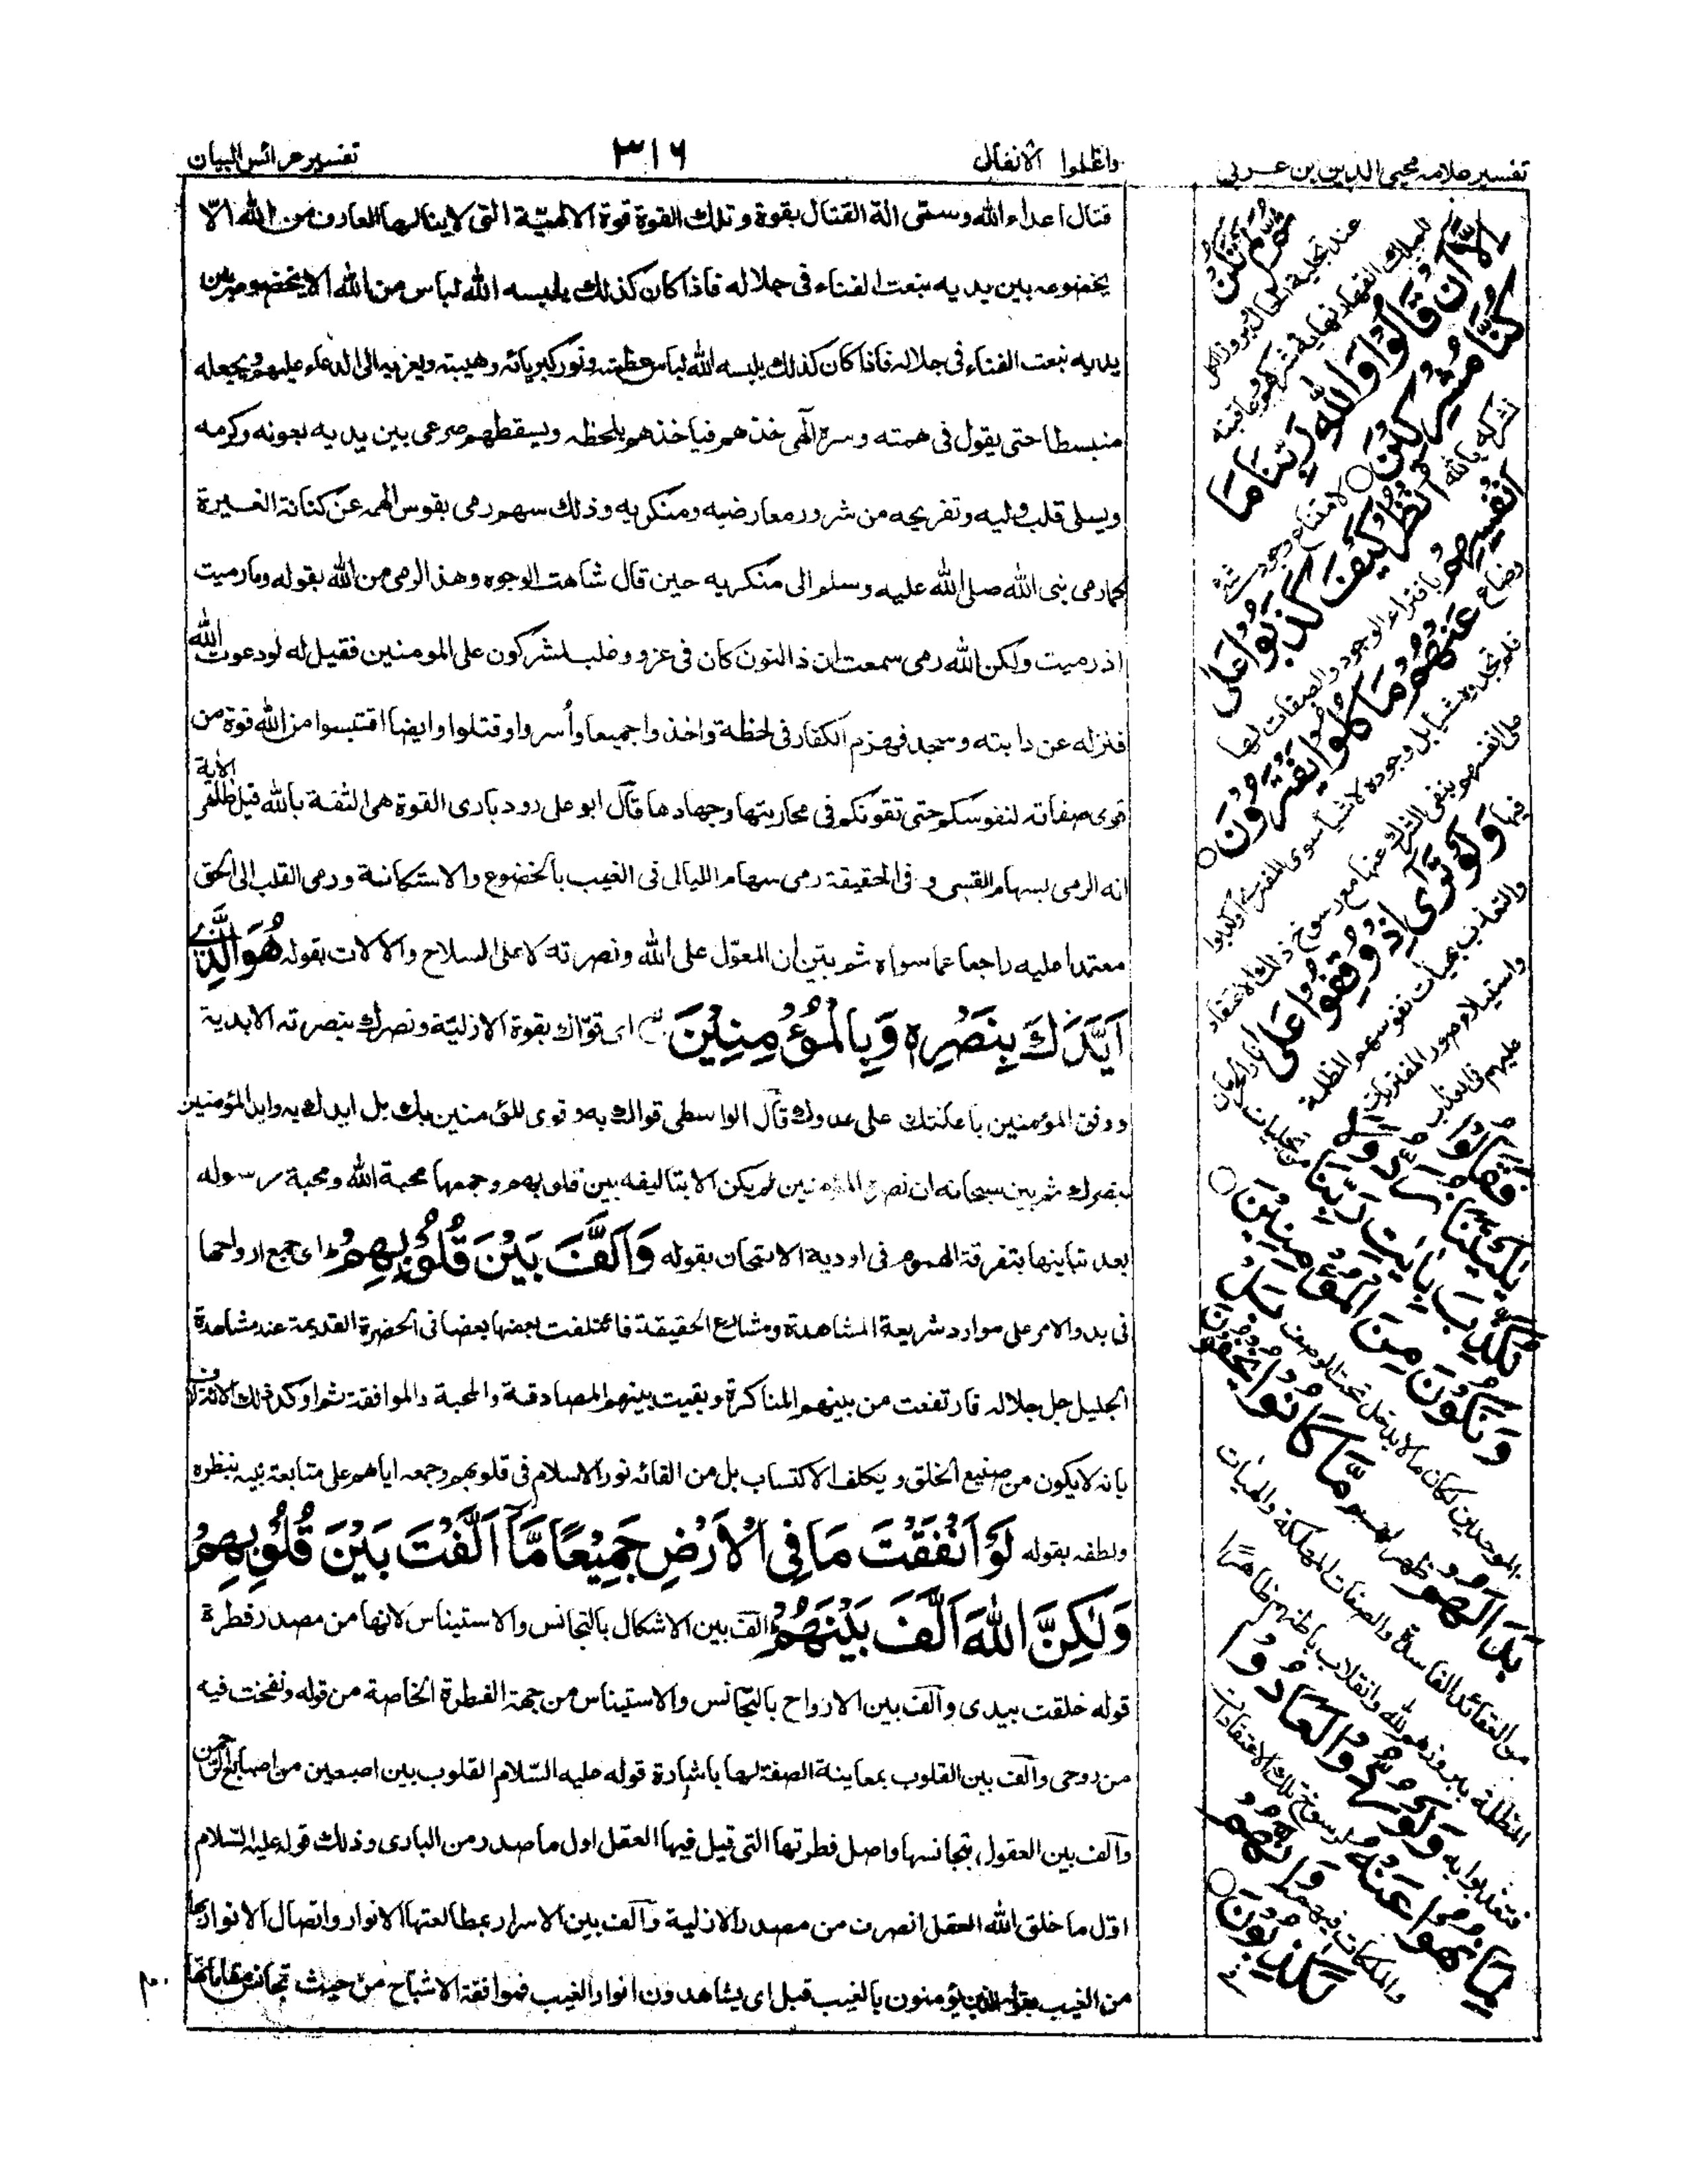 تفسير علامه محيى الدين بن عربي
واعلموا الانفال
٣١٦
تفسير عرائس البيان
قتال اعداء الله وسمّى الة القتال بقوة وتلك القوة قوة الالهيّة التى لاينالها العارف من الله الّا
بخضوعه بين يديه بنعت الفناء فى جلاله فاذا كان كذلك يلبسه الله لباس من الله الا بخضوعه بين
يديه بنعت الفناء فى جلاله فاذا كان كذلك يلبسه الله لباس عظمته ونور كبريائه وهيبته ويغريه الى الدعاء عليهم ويجعله
منبسطا حتى يقول فى همته وسره آلهى خذهم فياخذهم بلحظه ويسقطهم صرعى بين يديه بعونه وكرمه
ويسلى قلب وليه وتفريجه من شرور معارضيه ومنكريه وذلك سهم رمى بقوس الهمه عن كنانة الغيرة
كما رمى نبى الله صلى الله عليه وسلم الى منكريه حين قال شاهت الوجوه وهذا الرمى من الله بقوله وما رميت
اذ رميت ولكن الله رمى سمعت ان ذا النون كان فى غزو وغلب المشركون على المومنين فقيل له لو دعوت الله
فنزله عن دابته وسجد فهزم الكفار فى لحظة واخذوا جميعا وأسروا وقتلوا وايضا اقتبسوا من الله قوة من
قوى صفاته لنفوسكم حتى تقويكم فى محاربتها وجهادها قال ابو على رودبارى القوة هى الثقة بالله قيل ظاهر الاية
انه الرمى بسهام القسى و فى الحقيقة رمى سهام الليالى فى الغيب بالخضوع والاستكانة ورمى القلب الى الحق
معتمدا عليه راجعا عما سواه ثم بيّن ان المعوّل على الله ونصرته لا على السلاح والالات بقوله هُوَ الَّذِىْ
اَيَّدَكَ بِنَصْرِهٖ وَبِالْمُؤْمِنِيْنَ اى قوّاك بقوة الازليّة ونصرك بنصرته الابدية
ووفق المؤمنين باعانتك على عدوك قال الواسطى قواك به وقوى المؤمنين بك بل ايدك به وايد المؤمنين
بنصرك ثم بين سبحانه ان نصرة المؤمنين لم يكن الا بتاليفه بين قلوبهم وجمعها محبة الله ومحبة رسوله
بعد تباينها بتفرقة الهموم فى اودية الامتحان بقوله وَاَلَّفَ بَيْنَ قُلُوْبِهِمْ اى جمع ارواحها
فى بدو الامر على موارد شريعة المشاهدة ومشارع الحقيقة فائتلفت بعضها بعضا فى الحضرة القديمة عند مشاهدة
الجليل جل جلاله فارتفعت من بينهم المناكرة وبقيت بينهم المصادقة والمحبة والموافقة ثم اوكد ذلك الائتلاف
بانه لايكون من صنيع الخلق و يكلف الاكتساب بل من القائه نور الاسلام فى قلوبهم وجمعه اياهم على متابعة نبيه بنظره
ولطفه بقوله لَوْ اَنْفَقْتَ مَا فِى الْاَرْضِ جَمِيْعًا مَّآ اَلَّفْتَ بَيْنَ قُلُوْبِهِمْ
وَلٰكِنَّ اللّٰهَ اَلَّفَ بَيْنَهُمْ الف بين الاشكال بالتجانس والاستيناس لانها من مصدر فطرة
قوله خلقت بيدى وآلف بين الارواح بالتجانس والاستيناس من جهة الفطرة الخاصة من قوله ونفخت فيه
من روحى وآلف بين القلوب بمعاينة الصفة لها باشارة قوله عليه السّلام القلوب بين اصبعين من اصابع الرحمن
وآلف بين العقول بتجانسها واصل فطرتها التى قيل فيها العقل اول ما صدر من البارى وذلك قوله عليه السّلام
اوّل ما خلق الله العقل انصرت من مصدر الازلية وآلف بين الاسرار بمطالعتها الانوار واتصال الانوار بها
من الغيب بقوله الذين يؤمنون بالغيب قيل اى يشاهدون انوار الغيب فموافقة الاشباح من حيث تجانس مقاماتها
ثُمَّ لَمْ تَكُنْ
اِلَّآ اَنْ قَالُوْا وَاللّٰهِ رَبِّنَا مَا
كُنَّا مُشْرِكِيْنَ ○ لامتناع وجود شئ
نشركه بالله اُنْظُرْ كَيْفَ كَذَبُوْا عَلٰى
اَنْفُسِهِمْ بافتراء الوجود والصفات لها
وضاع عَنْهُمْ مَّا كَانُوْا يَفْتَرُوْنَ ○
فلم تجدوه شيا بل وجوده لاشيا سوى المفترى
على انفسهم بنفى الشرك عنها مع رسوخ ذلك الاعتقاد
فيها وَلَوْ تَرٰٓى اِذْ وُقِفُوْا عَلَى
والتعذب بهيأت نفوسهم المظلمة
واستيلاء صور المفتريات
عليهم فى العذاب
فَقَالُوْا
يٰلَيْتَنَا نُرَدُّ وَلَا
نُكَذِّبَ بِاٰيٰتِ رَبِّنَا من تجليات
وَنَكُوْنَ مِنَ الْمُؤْمِنِيْنَ ○
الموحدين لكان ما لايدخل تحت الوصف بَلْ
بَدَا لَهُمْ ظهر لهم مَّا كَانُوْا يُخْفُوْنَ
من العقائد الفاسدة والصفات المهلكة والهيات
المظلمة ببروزهم لله وانقلاب باطنهم ظاهرًا
فتعذبوا به وَلَوْ رُدُّوْا لَعَادُوْا
لِمَا نُهُوْا عَنْهُ لرسوخ تلك الاعتقادات
والملكات فيهم وَاِنَّهُمْ
لَكٰذِبُوْنَ ○